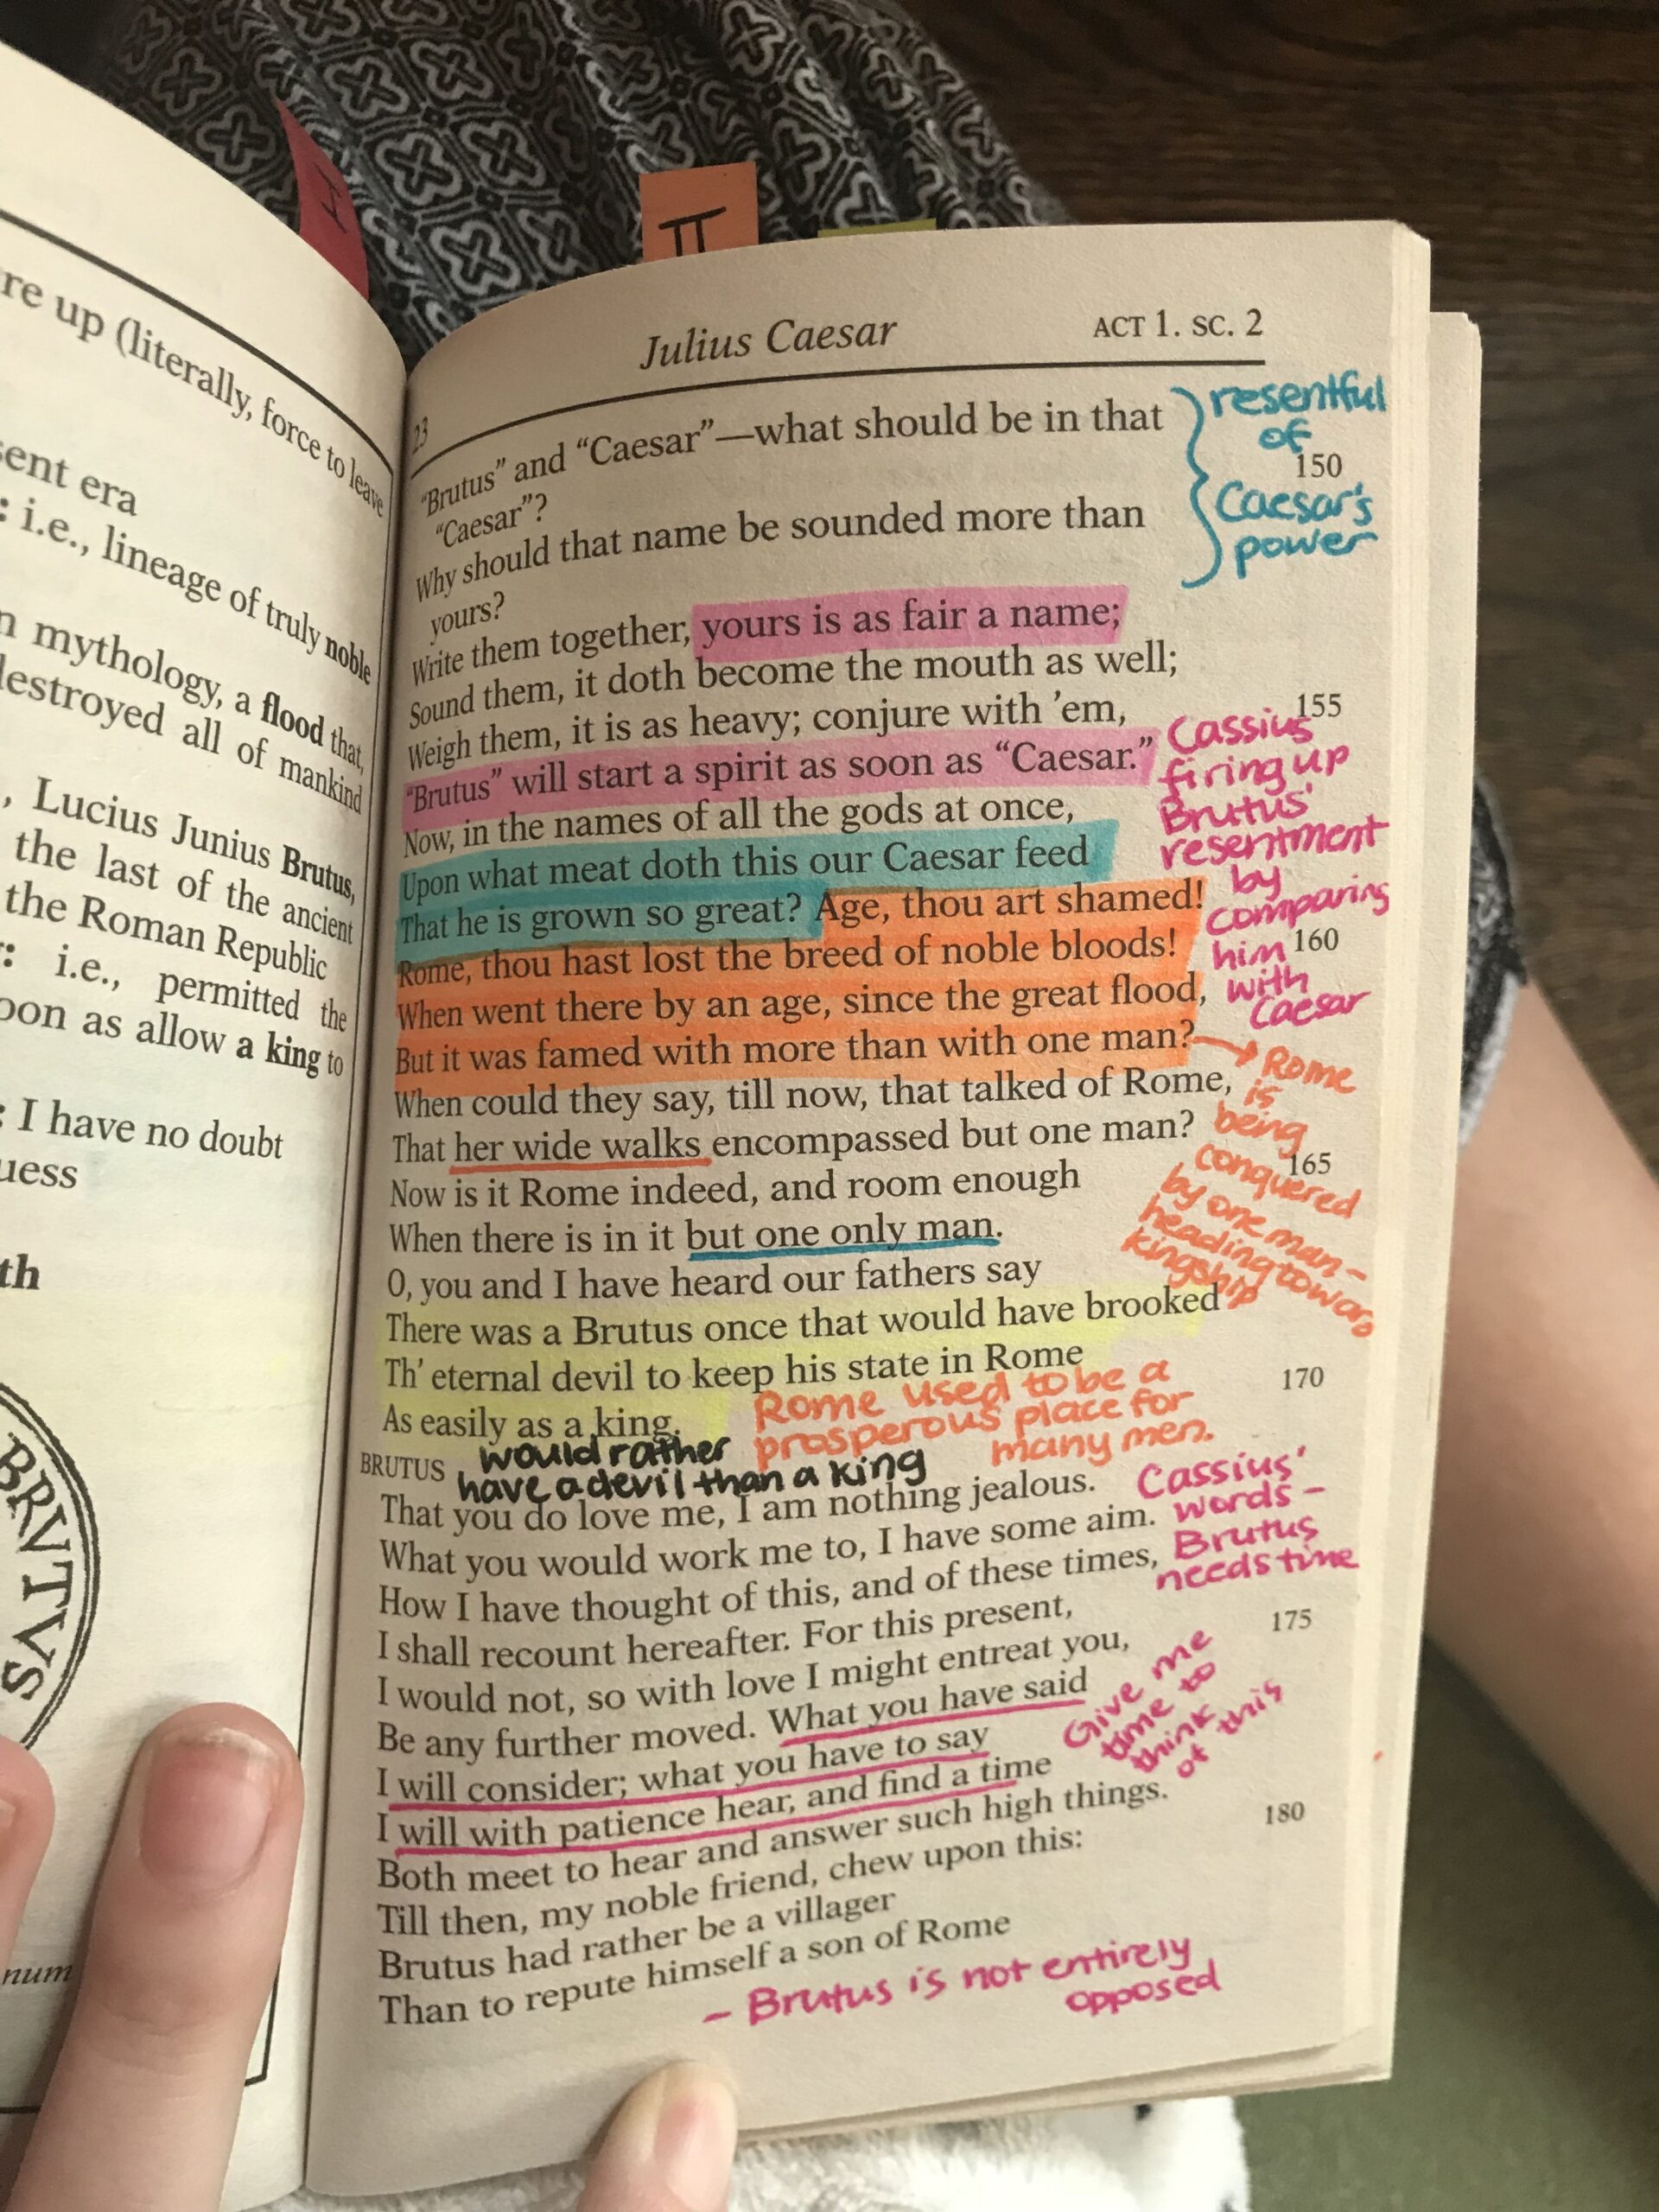 re up (literally, force to leave
sent era
: i.e., lineage of truly noble
n mythology, a flood that,
destroyed all of mankind
, Lucius Junius Brutus,
the last of the ancient
the Roman Republic
: i.e., permitted the
oon as allow a king to
: I have no doubt
uess
th
BRVTVS
num
II
23
Julius Caesar
ACT 1. SC. 2
"Brutus" and "Caesar"—what should be in that
"Caesar"?
150
Why should that name be sounded more than
yours?
Write them together, yours is as fair a name;
Sound them, it doth become the mouth as well;
Weigh them, it is as heavy; conjure with 'em,
155
"Brutus" will start a spirit as soon as "Caesar."
Now, in the names of all the gods at once,
Upon what meat doth this our Caesar feed
That he is grown so great? Age, thou art shamed!
Rome, thou hast lost the breed of noble bloods!
160
When went there by an age, since the great flood,
But it was famed with more than with one man?
When could they say, till now, that talked of Rome,
That her wide walks encompassed but one man?
Now is it Rome indeed, and room enough
165
When there is in it but one only man.
O, you and I have heard our fathers say
There was a Brutus once that would have brooked
Th' eternal devil to keep his state in Rome
As easily as a king.
170
BRUTUS
That you do love me, I am nothing jealous.
What you would work me to, I have some aim.
How I have thought of this, and of these times,
I shall recount hereafter. For this present,
175
I would not, so with love I might entreat you,
Be any further moved. What you have said
I will consider; what you have to say
I will with patience hear, and find a time
Both meet to hear and answer such high things.
180
Till then, my noble friend, chew upon this:
Brutus had rather be a villager
Than to repute himself a son of Rome
resentful
of
Caesar's
power
Cassius
firing up
Brutus'
resentment
by
comparing
him
with
Caesar
Rome
is
being
conquered
by one man-
heading toward
kingship
Rome used to be a
prosperous place for
many men.
would rather
have a devil than a king
Cassius'
words -
Brutus
needs time
Give me
time to
think
of this
- Brutus is not entirely
opposed